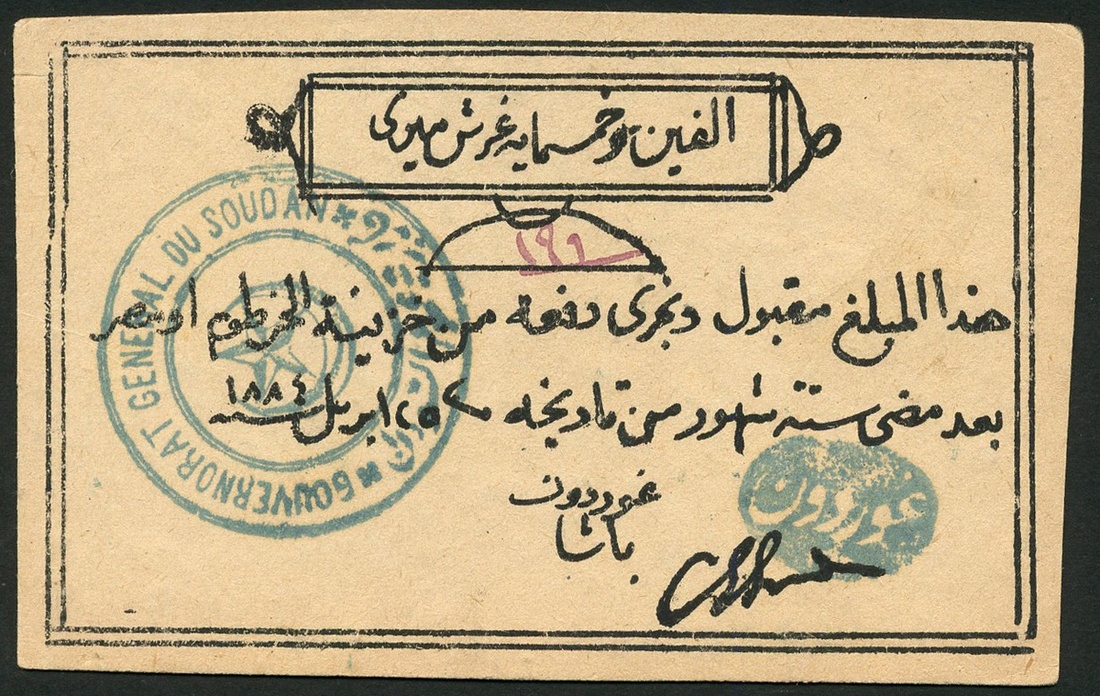 الفين وخمسمايه غرش ميرى
١٩١
هذا المبلغ مقبول ويجرى دفعه من خزينة الخرطوم او مصر
بعد مضى ستة شهور من تاريخه ٢٥ ابريل سنة ١٨٨٤
غوردون
باشا
غوردون
GOUVERNORAT GENERAL DU SOUDAN